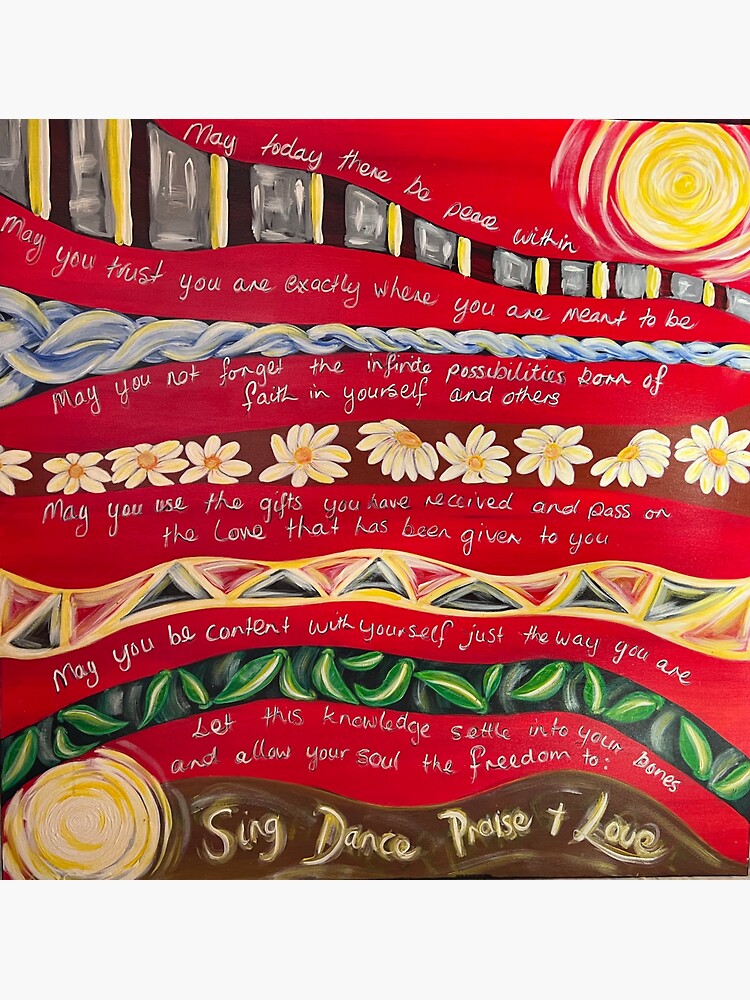 May today there be peace within
May you trust you are exactly where you are meant to be
May you not forget the infinite possibilities born of
faith in yourself and others
May you use the gifts you have received and pass on
the love that has been given to you
May you be content with yourself just the way you are
Let this knowledge settle into your bones
and allow your soul the freedom to:
Sing Dance Praise + Love